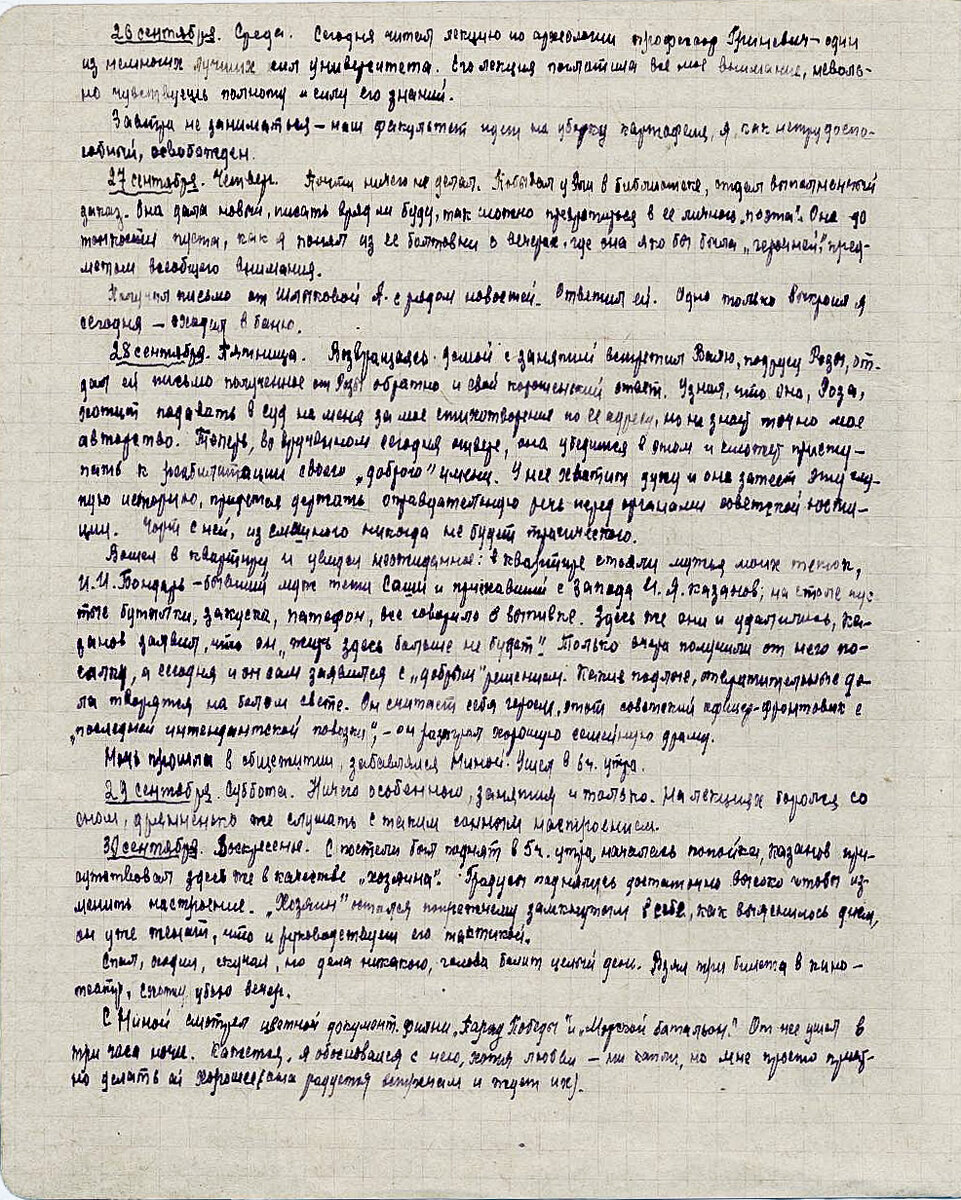 26 сентября. Среда. Сегодня читал лекцию по археологии професоор Гриневич – один
из немногих лучших сил университета. Его лекция поглатила все мое внимание, неволь-
но чувствуешь полноту и силу его знаний.
Завтра не заниматься – наш факультет идет на уборку картофеля, я, как нетрудоспо-
собный, освобожден.
27 сентября. Четверг. Почти ничего не делал. Побывал у в библиотеке, отдал выполненный
заказ. Она дала новый, писать врядли буду, так можно превратиться в ее личного „поэта". Она до
тонкости пуста, как я понял из ее болтовни о вечерах, где она яко бы была „героиней", пред-
метом всеобщего внимания.
Получил письмо от Шлыковой А. с рядом новостей. Ответил ей. Одно только выкроил я
сегодня – сходил в баню.
28 сентября. Пятница. Возвращаясь домой с занятий встретил Валю, подругу Розы, от-
дал ей письмо полученное от Розы обратно и свой ответ. Узнал, что она, Роза,
хочет подавать в суд на меня за мое стихотворение по ее адресу, но не знает точно мое
авторство. Теперь, во врученном сегодня ответе, она убедится в этом и сможет присту-
пить к реабилитации своего „доброго" имени. У нее хватит духу и она затеет эту глу-
пую историю, придется держать оправдательную речь перед органами советской юсти-
ции. Чорт с ней, из смешного никогда не будет трагического.
Вошел в квартиру и увидел неожиданное: в квартире стояли мужья моих теток,
И.И. Бондарь – бывший муж тети Саши и приехавший с Запада И.Я. Казанов; на столе пус-
тые бутылки, закуска, патефон, все говорило о выпивке. Здесь же они и удалились, Ка-
занов заявил, что он „жить здесь больше не будет". Только вчера получили от него по-
сылку, а сегодня и он сам заявился с „добрым" решением. Какие подлые, отвратительные де-
ла творятся на белом свете. Он считает себя героем, этот советский офицер-фронтовик с
„последней интендантской повозки", – он разыграл хорошую семейную драму.
Ночь прошла в общежитии, забавлялся с Ниной. Ушел в 6 ч. утра.
29 сентября. Суббота. Ничего особенного, занятия и только. На лекциях боролся со
сном, дрянненько же слушать с таким сонным настроением.
30 сентября. Воскресенье. С постели был поднят в 5 ч. утра, началась попойка, Казанов при-
сутствовал здесь же в качестве „хозяина". Градусы поднялись достаточно высоко чтобы из-
менить настроение. „Хозяин" остался попрежнему замкнутым в себе, как выяснилось днем,
он уже женат, что и руководствует его тактикой.
Спал, ходил, скучал, но дела никакого, голова болит целый день. Взял три билета в кино-
театр, схожу, убью вечер.
С Ниной смотрел цветной документ. фильм „Парад Победы" и „Морской батальон". От нее ушел в
три часа ночи. Кажется, я обосновался с нею, хотя любви – ни капли, но мне просто прият-
но делать ей хорошее (она радуется встречам и ждет их).